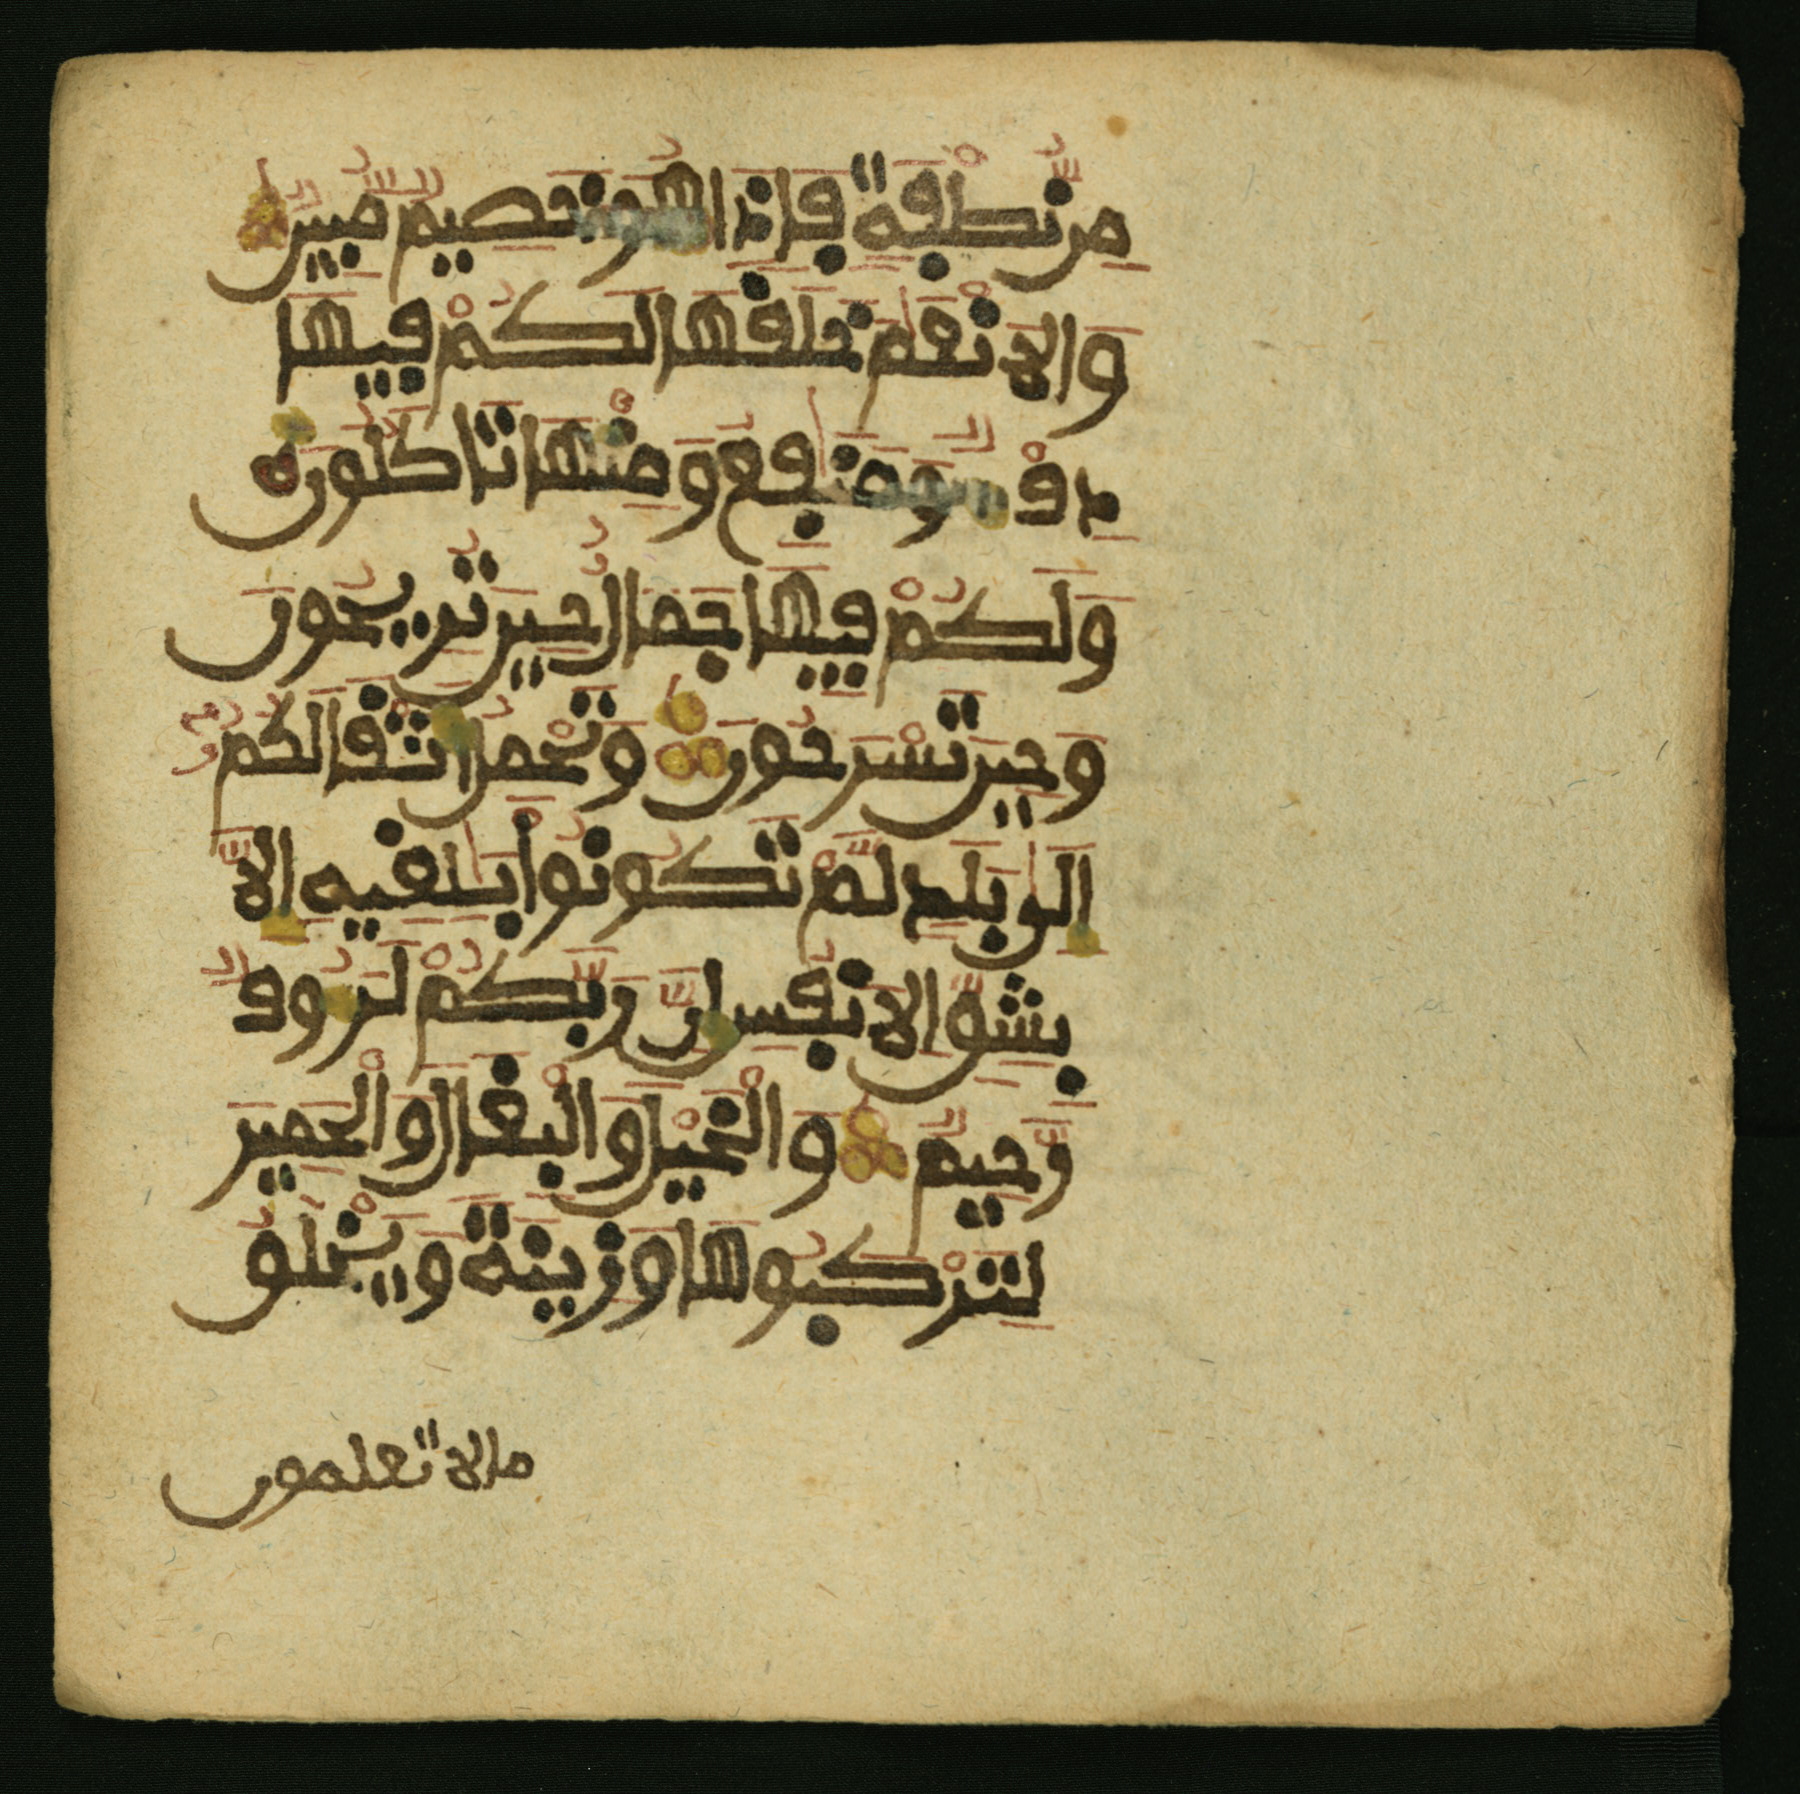 مِن نُّطْفَةٍ فَإِذَا هُوَ خَصِيمٌ مُّبِينٌ
وَالَانْعَٰمَ خَلَقَهَا لَكُمْ فِيهَا
دِفْءٌ وَمَنَٰفِعُ وَمِنْهَا تَاكُلُونَ
وَلَكُمْ فِيهَا جَمَالٌ حِينَ تُرِيحُونَ
وَحِينَ تَسْرَحُونَ وَتَحْمِلُ أَثْقَالَكُمُ
إِلَىٰ بَلَدٍ لَّمْ تَكُونُواْ بَٰلِغِيهِ إِلَّا
بِشِقِّ الَانفُسِ إِنَّ رَبَّكُمْ لَرَءُوفٌ
رَّحِيمٌ وَالْخَيْلَ وَالْبِغَالَ وَالْحَمِيرَ
لِتَرْكَبُوهَا وَزِينَةً وَيَخْلُقُ
ما لا تعلمون